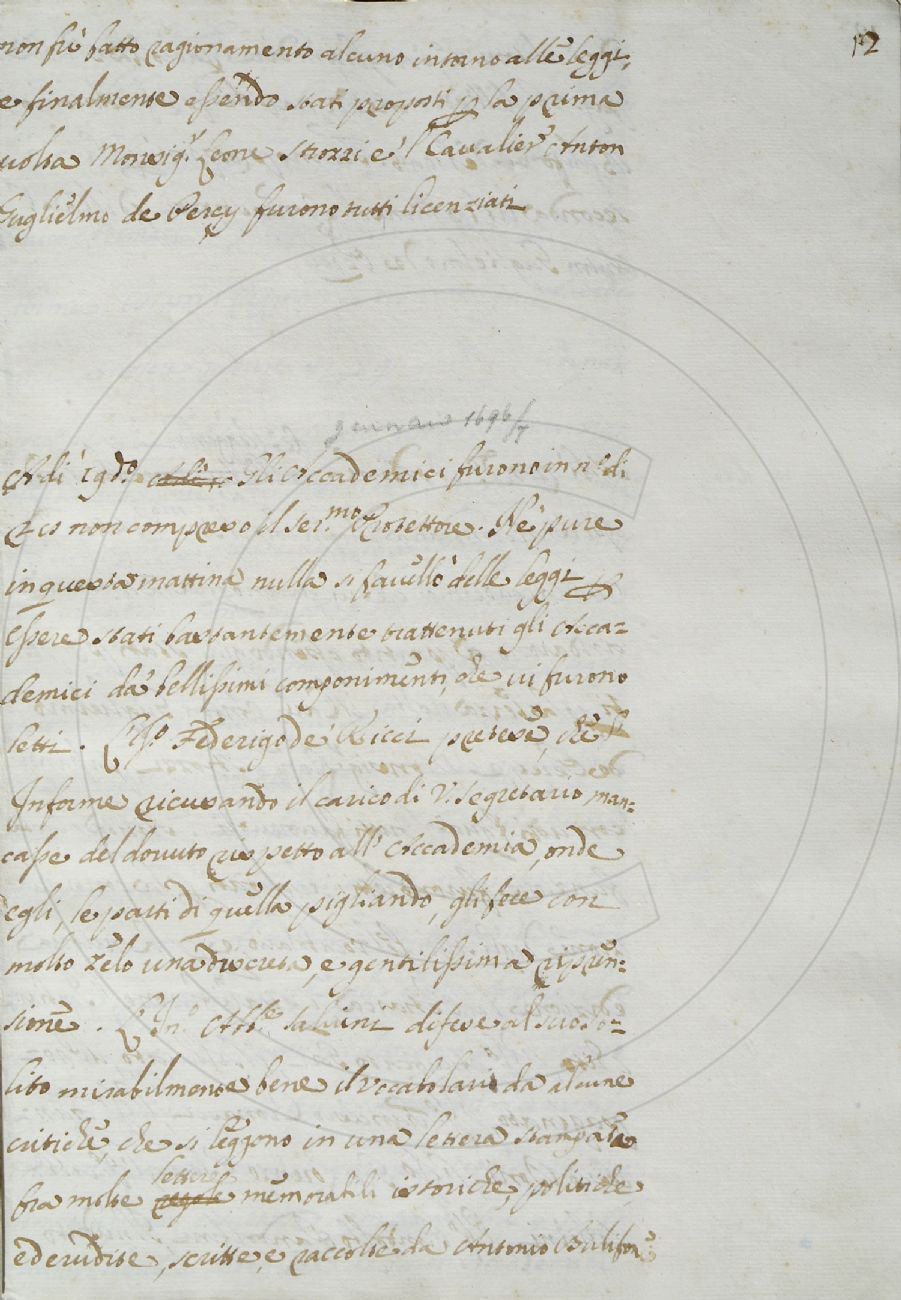 12
non fù fatto ragionamento alcuno intorno alle leggi,
e finalmente essendo stati proposti p la prima
volta Monsig.r Leone Strozzi e 'l Cavalier Anton
Guglielmo de Percy furono tutti licenziati
Gennaio 1696/7
A dì 19 d.o Gli Accademici furono in n.o di
21 co non compreso il Ser.mo Protettore. Nè pure
in questa mattina nulla si favellò delle leggi p
essere stati bastantemente trattenuti gli Acca=
demici da' bellissimi componimenti, che vi furono
letti. Federigo de' Ricci pretese, che l'
Informe ricusando il carico di V. Segretario, man=
casse del dovuto rispetto all' Accademia, onde
egli, le parti di quella pigliando, gli fece con
molto zelo una discreta, e gentilissima ripren=
sione. L' In.o Ab.te Salvini difese al suo so=
lito mirabilmente bene il Vocabolario da alcune
critiche, che si leggono in una lettera stampata
fra molte lettere memorabili istoriche, politiche
ed erudite, scritte, e raccolte da Antonio Bulifon